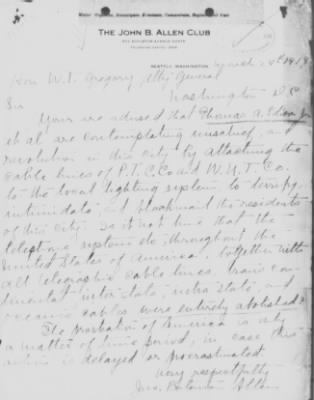 THE JOHN B. ALLEN CLUB
SEATTLE, WASHINGTON, March 1918
Hon W. T. Gregory Atty General
Washington D.C.
Sir
Your are advised that Thomas A. Edison Jr
et al are contemplating mischief, and
revolution in this city by attaching the
cable lines of P.T.C. Co and W.U.T. Co.
to the local lighting system to terrify,
intimidate, and blackmail the residents
of this city. Is it not time that the
telephone systems etc, throughout the
United States of America, together with
all telegraphic cable lines, trans con-
tinental inter state, intra state, and
oceanic cables were entirely abolished?
The probation of America is only
a matter of time period, in case this
action is delayed or procrastinated.
Very respectfully
Allen